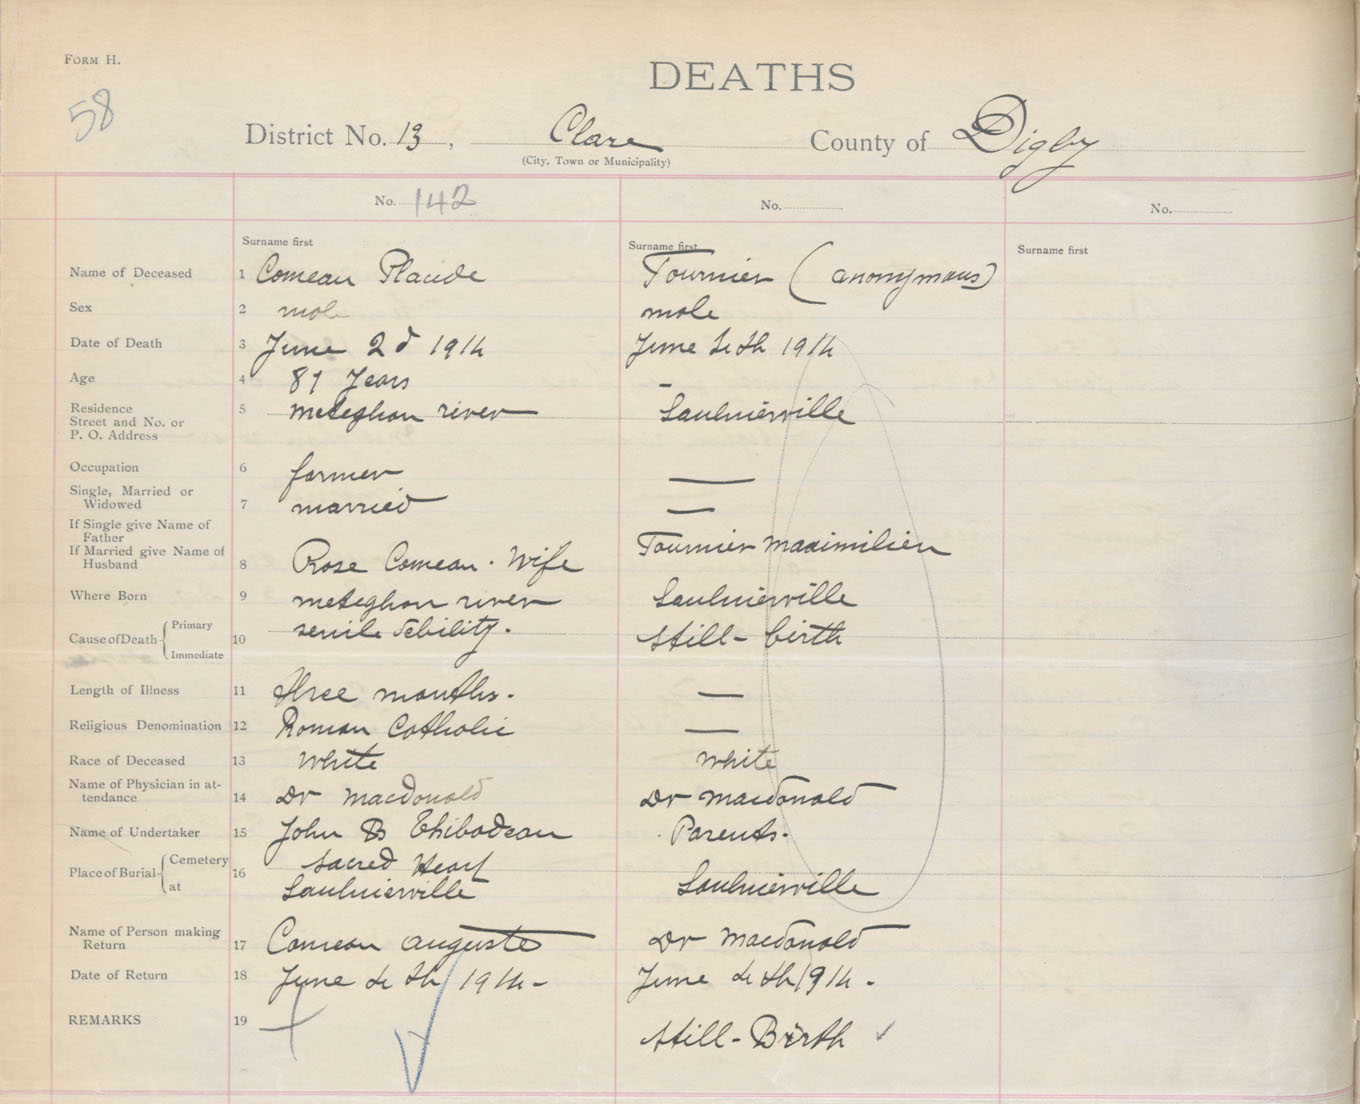 FORM H.
58
DEATHS
District No. 13, Clare County of Digby
(City, Town or Municipality)
No. 142 No. No.
Surname first Surname first Surname first
Name of Deceased 1 Comeau Placide Fournier (anonymous)
Sex 2 male male
Date of Death 3 June 2d 1914 June 4th 1914
Age 4 87 Years –
Residence 5 meteghan river Saulnierville
Street and No. or
P. O. Address
Occupation 6 farmer —
Single, Married or
Widowed 7 married —
If Single give Name of
Father
If Married give Name of Fournier Maximilien
Husband 8 Rose Comeau. Wife
Where Born 9 meteghan river Saulnierville
Cause of Death { Primary Immediate 10 senile debility. still-birth
Length of Illness 11 three months. —
Religious Denomination 12 Roman Catholic —
Race of Deceased 13 White white
Name of Physician in at-
tendance 14 Dr macdonald Dr macdonald
Name of Undertaker 15 John B Thibodeau Parents.
Place of Burial { Cemetery 16 Sacred Heart
at Saulnierville Saulnierville
Name of Person making
Return 17 Comeau auguste Dr Macdonald
Date of Return 18 June 4th 1914- June 4th 1914.
REMARKS 19 still-Birth